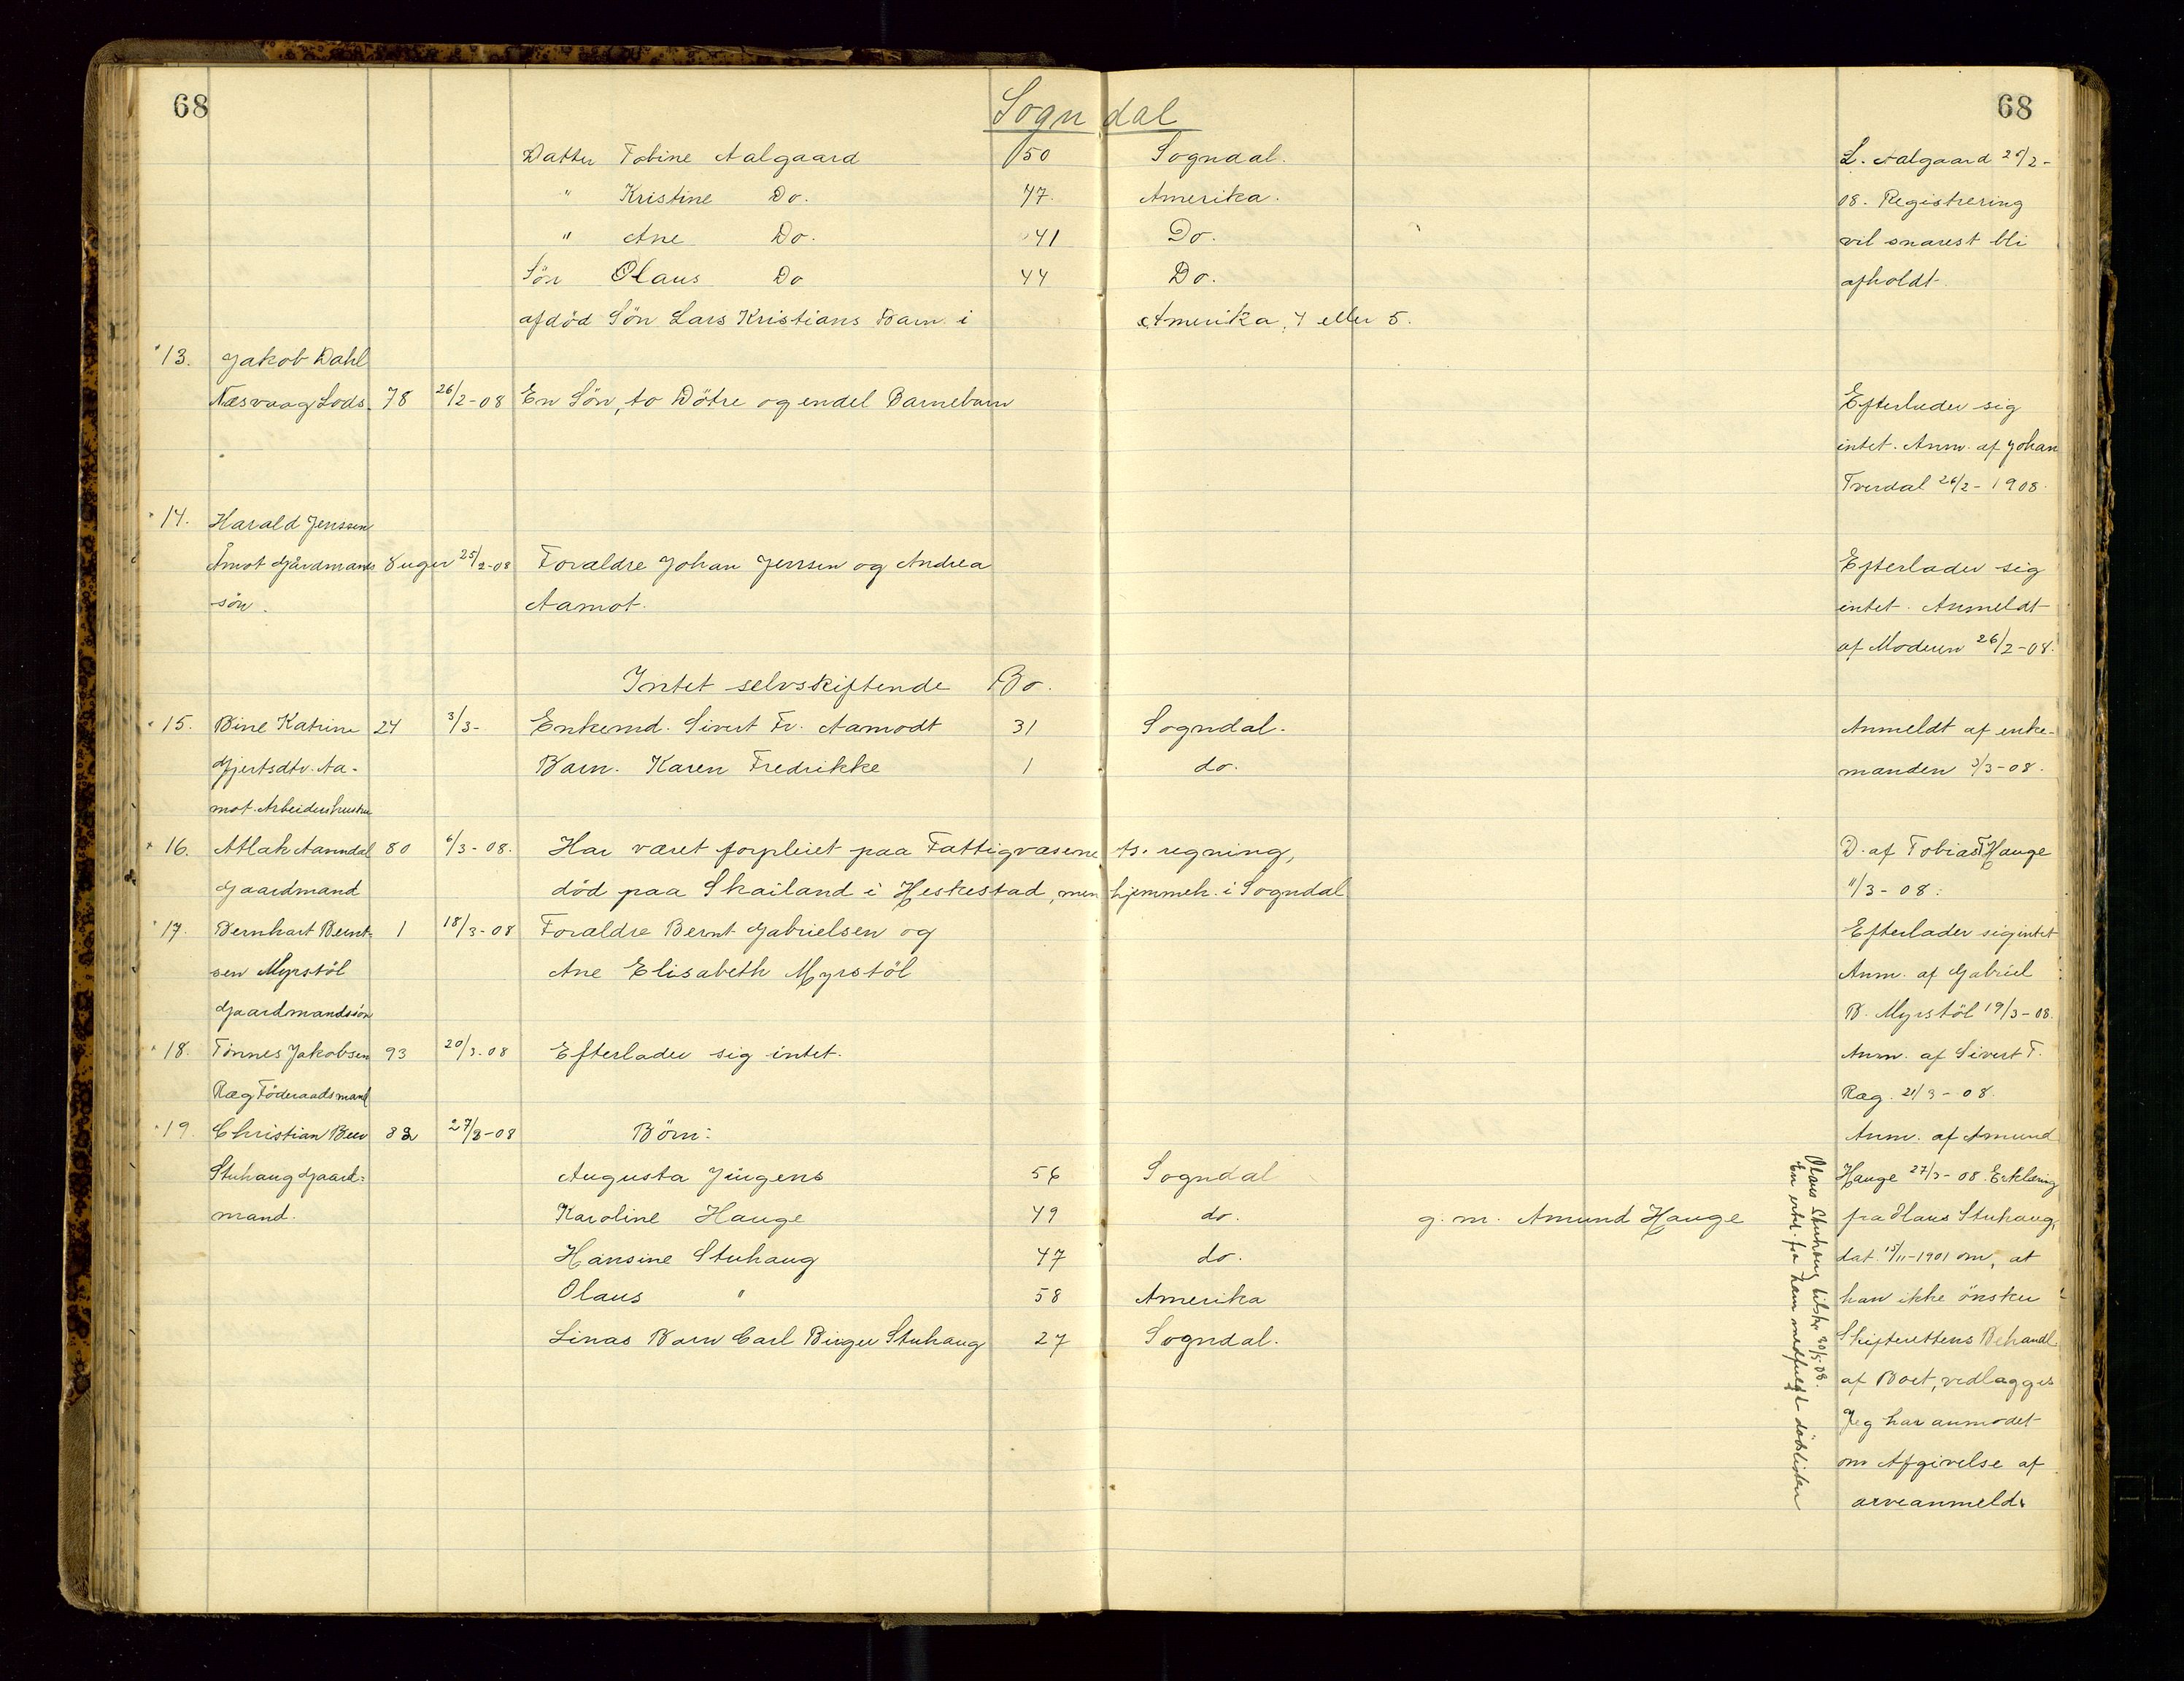 68
Sogndal
68
Datter Tobine Aalgaard 50 Sogndal. L. Aalgaard 25/2-
" Kristine Do. 47. Amerika. 08. Registrering
" Ane Do. 41 Do. vil snarest bli
Sön Olaus Do 44 Do. afholdt.
afdöd Sön Lars Kristians Barn i Amerika, 4 eller 5.
13. Jakob Dahl
Næsvaag Lods. 78 26/2-08 En Sön, to Dötre og endel Barnebarn Efterlader sig
intet. Anm. af Johan
Tverdal 26/2-1908.
14. Harald Jenssen
Åmot Gårdmands 8 uger 25/2-08 Forældre Johan Jenssen og Andrea Efterlader sig
sön. Aamot. intet. Anmeldt
af Moderen 26/2-08.
Intet selvskiftende Bo.
15. Bine Katrine 24 3/3- Enkemd. Sivert Fr. Aamodt 31 Sogndal. Anmeldt af enke-
Gjertsdtr. Aa- Barn. Karen Fredrikke 1 do. manden 3/3-08.
mot. Arbeiderhustru
16. Atlak Aamdal 80 6/3-08. Har været forpleiet paa Fattigvæsenets regning, D. af Tobias T Hauge
Gaardmand död paa Skailand i Heskestad, men hjemmeh. i Sogndal 11/3-08.
17. Bernhart Bernt- 1 18/3-08 Forældre Bernt Gabrielsen og Efterlader sig intet
sen Myrstöl Ane Elisabeth Myrstöl Anm. af Gabriel
Gaardmandssön B. Myrstöl 19/3-08.
18. Tönnes Jakobsen 93 20/3-08 Efterlader sig intet. Anm. af Sivert T.
Ræg Föderaadsmand Ræg. 21/3-08.
19. Christian Beer 82 27/3-08 Börn: Anm. af Amund
Stuhaug Gaard- Augusta Jürgens 56 Sogndal Hauge 27/3-08. Erklæring
mand. Karoline Hauge 49 do. g. m. Amund Hauge fra Olaus Stuhaug,
Hansine Stuhaug 47 do. dat. 15/11-1901 om, at
Olaus " 58 Amerika han ikke önsker
Linas Barn Carl Birger Stuhaug 27 Sogndal. Skifterettens Behandl.
af Boet, vedlægges
Jeg har anmodet
om Afgivelse af
arveanmeld.
Olaus Stuhaug tilskr 30/5-08.
En erkl. fra ham medfulgt dödslisten